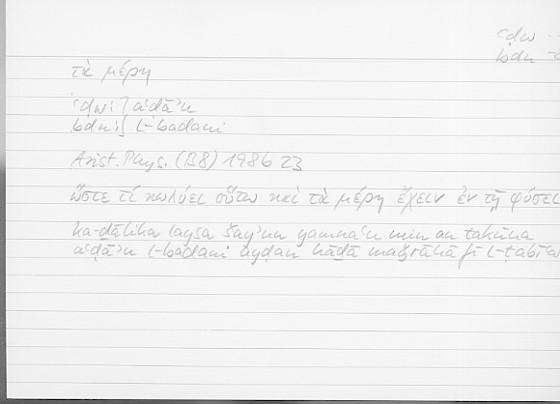 ʿḍw
bdn
τὰ μέρη
ʿḍw:] aʿḍāʾu
bdn:] l-badani
Arist. Phys. (B8) 198b 23
ὥστε τί κωλύει οὕτω καὶ τὰ μέρη ἔχειν ἐν τῇ φύσει
ka-ḏālika laysa šayʾun yamnaʿu min an takūna
aʿḍāʾu l-badani ayḍan hāḏā maǧrāhā fī l-ṭabīʿa